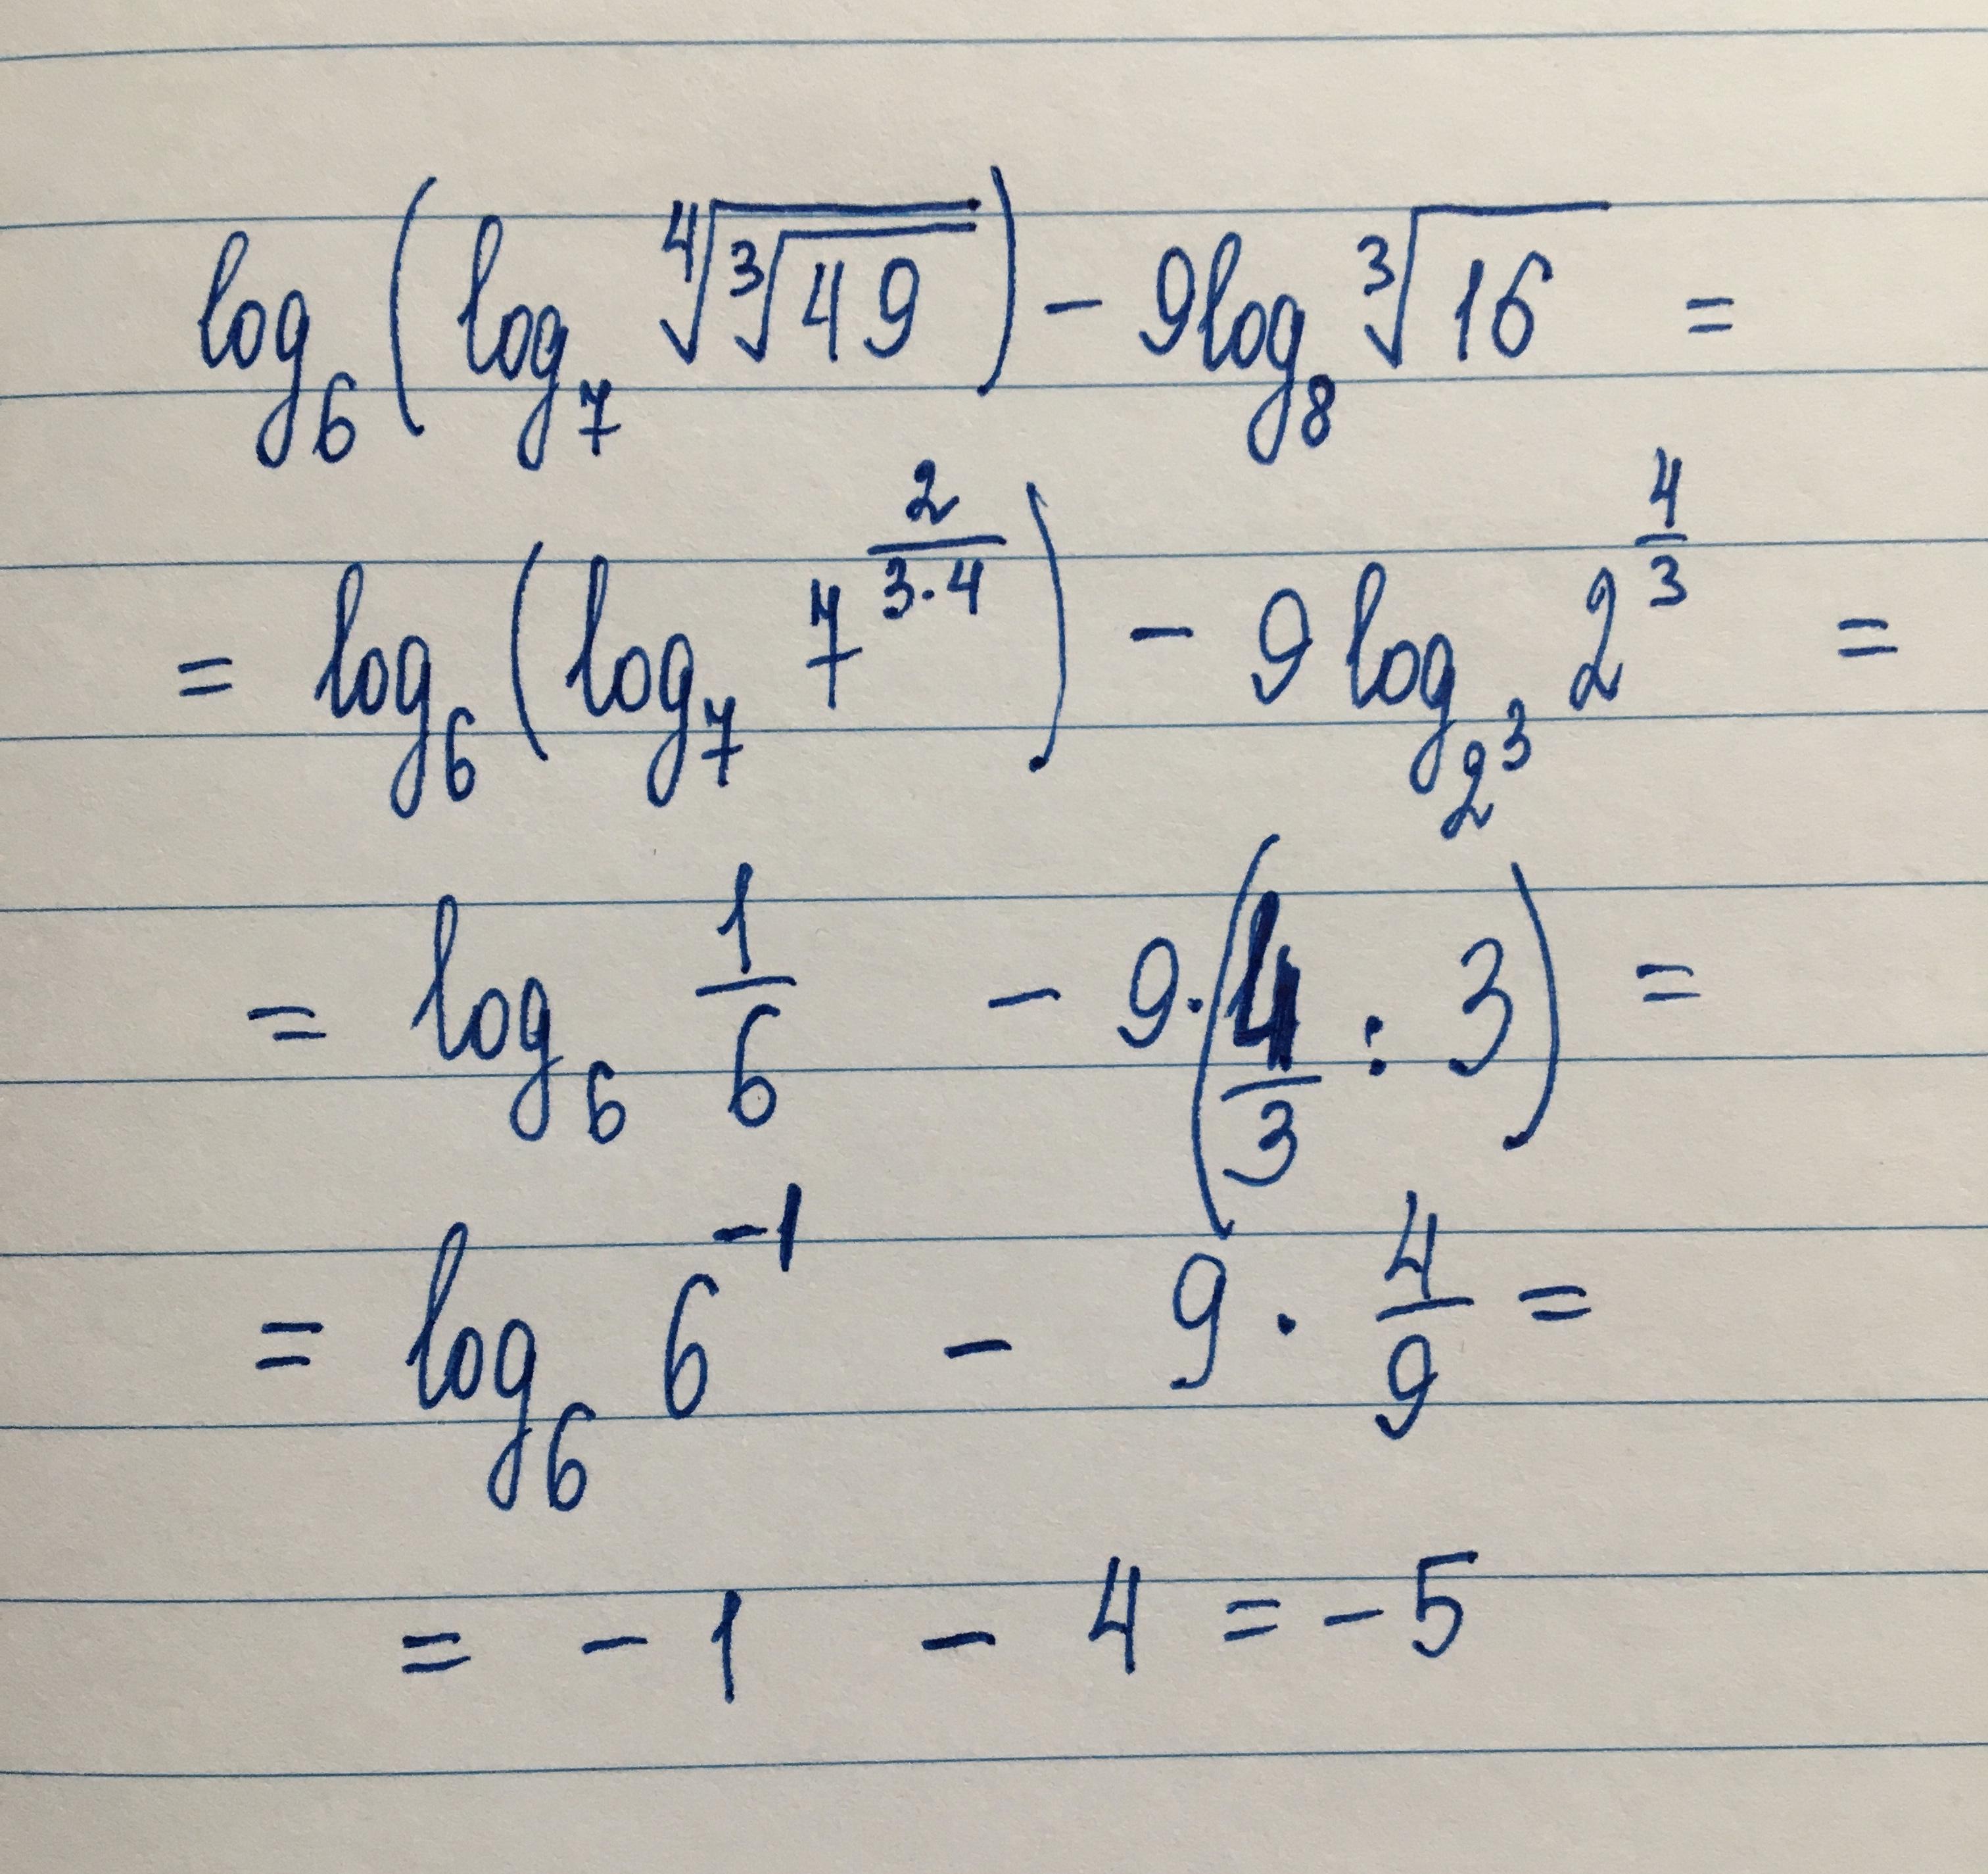 log₆(log₇ ⁴√(³√49)) - 9log₈ ³√16 =
= log₆(log₇ 7^(2/(3·4))) - 9 log_(2³) 2^(4/3) =
= log₆ 1/6 - 9·(4/3 : 3) =
= log₆ 6⁻¹ - 9 · 4/9 =
= - 1 - 4 = - 5